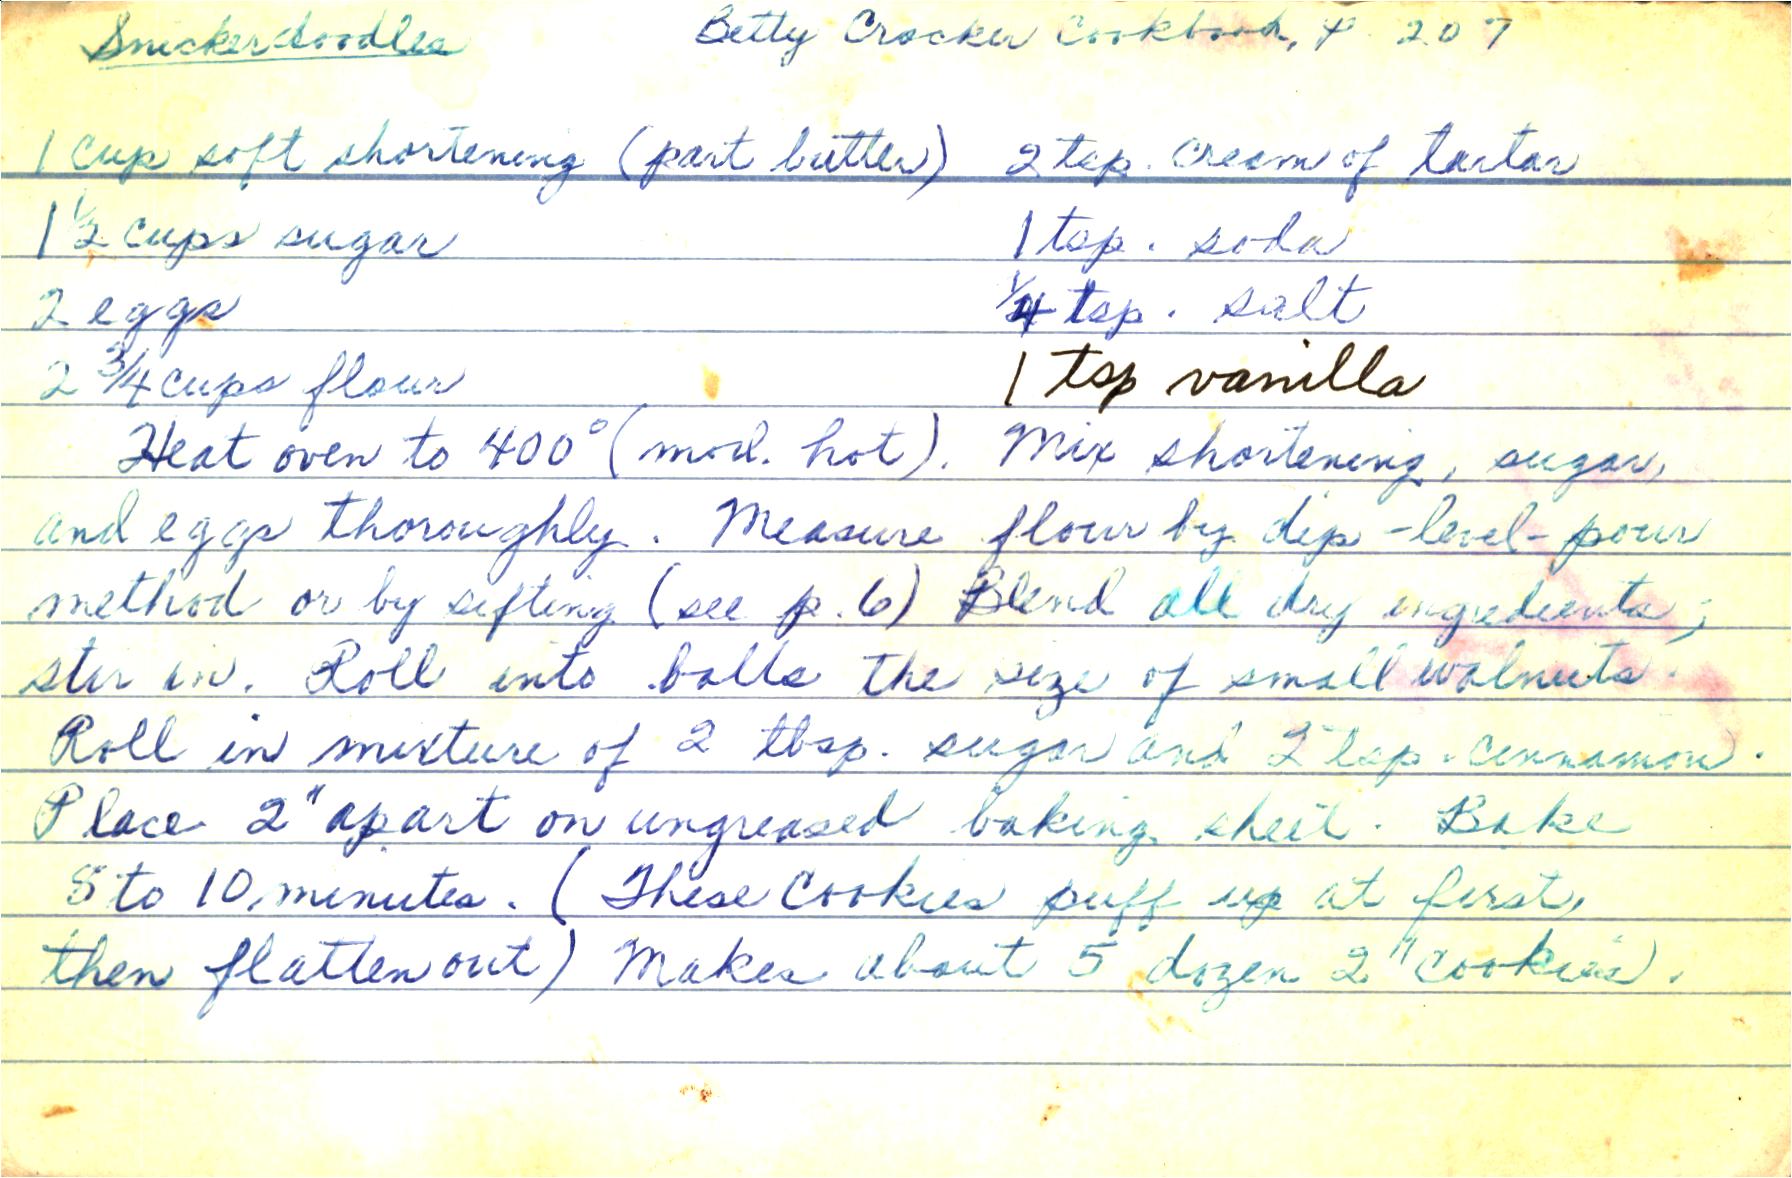 Snickerdoodles Betty Crocker Cookbook, p. 207
1 cup soft shortening (part butter) 2 tsp. cream of tartar
1 1/2 cups sugar 1 tsp. soda
2 eggs 1/4 tsp. salt
2 3/4 cups flour 1 tsp vanilla
Heat oven to 400° (mod. hot). Mix shortening, sugar,
and eggs thoroughly. Measure flour by dip-level-pour
method or by sifting (see p. 6) Blend all dry ingredients;
stir in. Roll into balls the size of small walnuts.
Roll in mixture of 2 tbsp. sugar and 2 tsp. cinnamon.
Place 2" apart on ungreased baking sheet. Bake
8 to 10 minutes. (These cookies puff up at first,
then flatten out) Makes about 5 dozen 2" cookies.